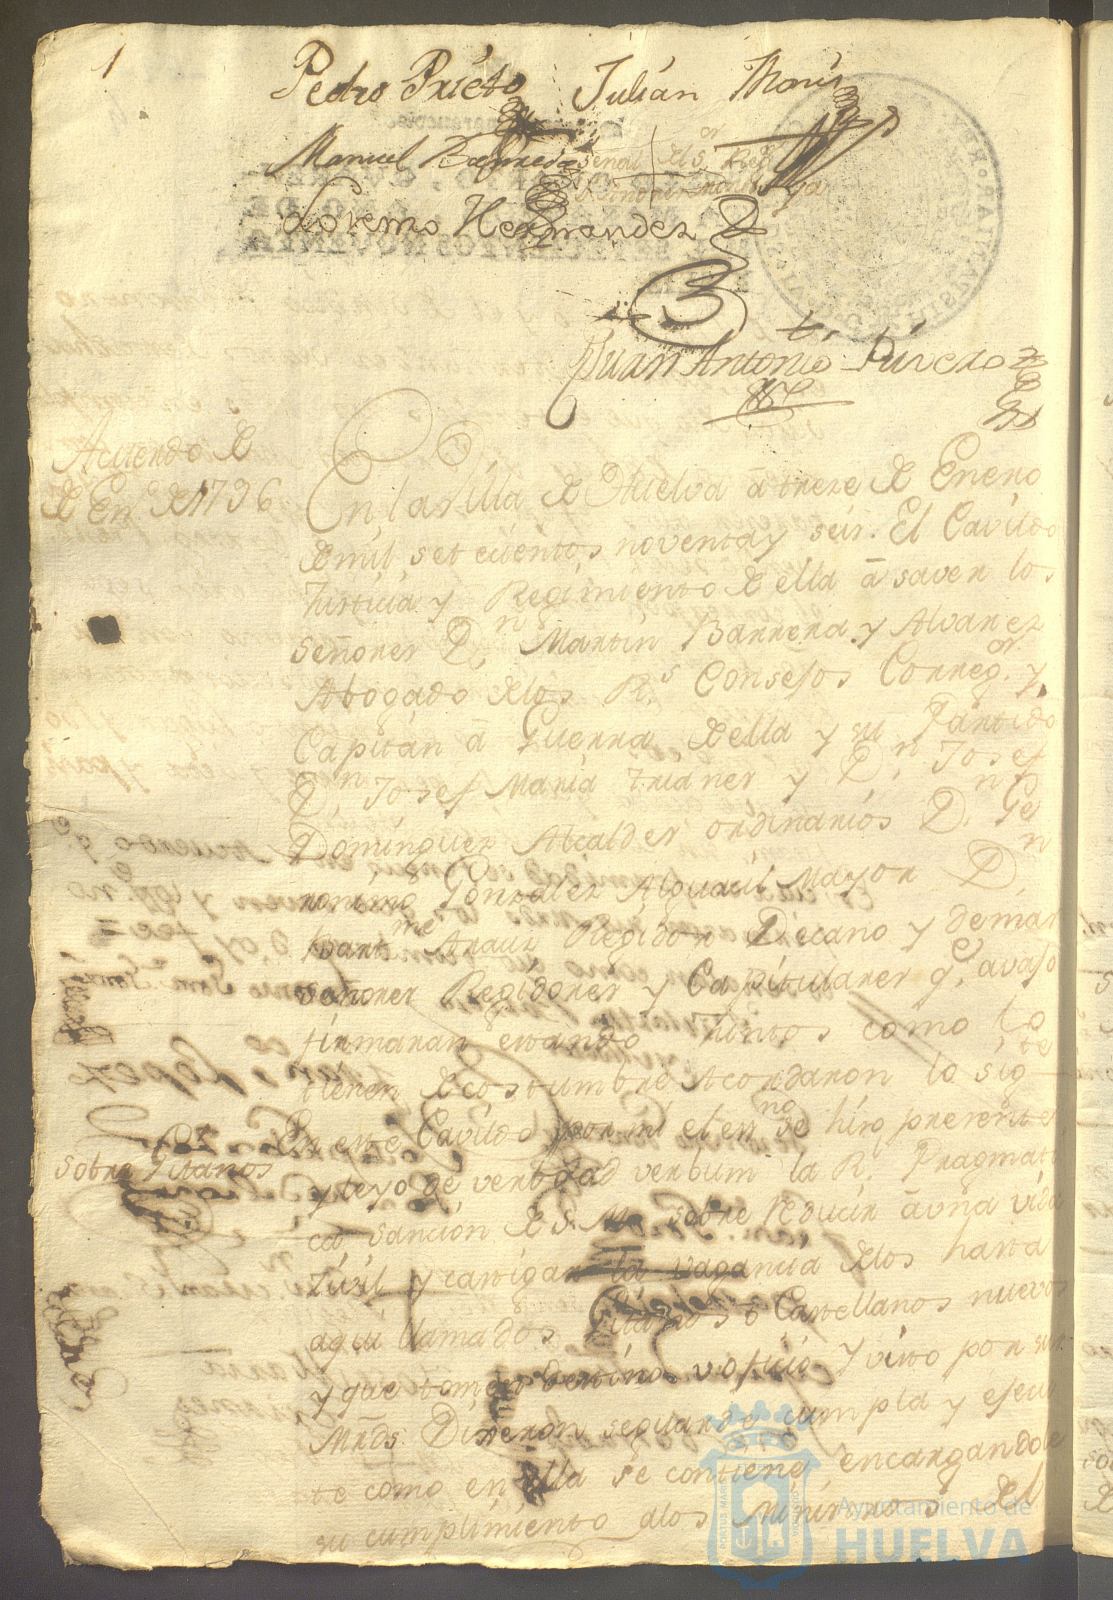 1
Pedro Prieto Julián
Manuel señal del s.or Reg.or
Lorenso Hernandez
Juan Antonio Rivero
Acuerdo de
de En.o de 1796
En la villa de Huelva à treze de Enero
de mil setecientos noventa y seis. El Cavildo
Justicia y Regimiento de ella à saver los
señores D.n Martín Barrera y Alvarez
Abogado de los R.s Consejos Correg.or y
Capitán à Guerra de ella y su Partido
D.n Josef María Trianer y D.n Josef
Dominguez Alcaldes ordinarios D.n Ge
ronimo Gonzalez Alguacil Mayor D.n
Bart.me Arauz Regidor Decano y demas
señores Regidores y Capitulares q.e avajo
firmaran estando juntos como lo
tienen de costumbre Acordaron lo sig.te
En este Cavildo por mí el es.no se hizo presente
Sobre Jitanos
y leyo de verbo ad verbum la R.l Pragmati
ca sanción de S. M. sobre reducir à vña vida
zivil y castigar la vagancia de los hasta
aquí llamados Gitanos ò Castellanos nuevos
y que tomen destino, v oficio y visto por sus
Mrds. Dixeron se guarde cumpla y ejecu
te como en ella se contiene encargandole
su cumplimiento a los Ministros del
Ayuntamiento de
HUELVA